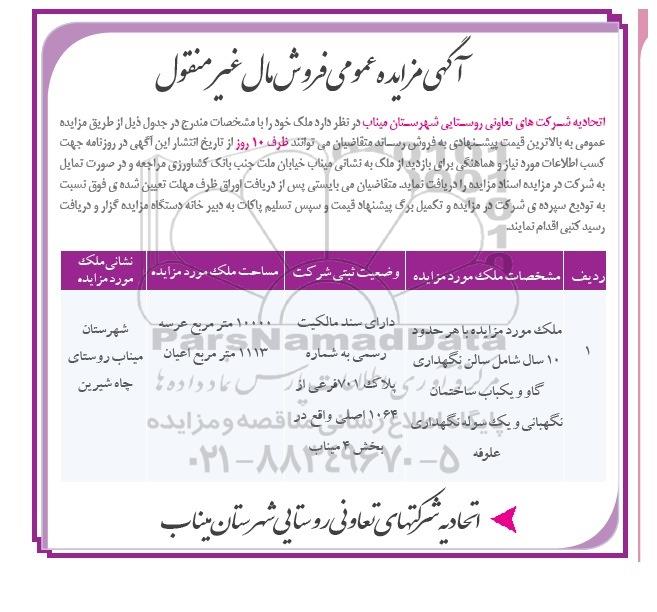 آگهی مزایده عمومی فروش مال غیر منقول
اتحادیه شرکت های تعاونی روستایی شهرستان میناب در نظر دارد ملک خود را با مشخصات مندرج در جدول ذیل از طریق مزایده
عمومی به بالاترین قیمت پیشنهادی به فروش رساند متقاضیان می توانند ظرف ۱۰ روز از تاریخ انتشار این آگهی در روزنامه جهت
کسب اطلاعات مورد نیاز و هماهنگی برای بازدید از ملک به نشانی میناب خیابان ملت جنب بانک کشاورزی مراجعه و در صورت تمایل
به شرکت در مزایده اسناد مزایده را دریافت نماید. متقاضیان می بایستی پس از دریافت اوراق ظرف مهلت تعیین شده ی فوق نسبت
به تودیع سپرده ی شرکت در مزایده و تکمیل برگ پیشنهاد قیمت و سپس تسلیم پاکات به دبیر خانه دستگاه مزایده گزار و دریافت
رسید کتبی اقدام نمایند.
ردیف
مشخصات ملک مورد مزایده
وضعیت ثبتی شرکت
مساحت ملک مورد مزایده
نشانی ملک
مورد مزایده
۱
ملک مورد مزایده با هر حدود
۱۰ سال شامل سالن نگهداری
گاو و یکباب ساختمان
نگهبانی و یک سوله نگهداری
علوفه
دارای سند مالکیت
رسمی به شماره
پلاک ۷۰۱ فرعی از
۱۰۶۴ اصلی واقع در
بخش ۴ میناب
۱۰۰۰۰ متر مربع عرسه
۱۱۱۳ متر مربع اعیان
شهرستان
میناب روستای
چاه شیرین
ParsNamadData
مرکز فرآوری اطلاعات پارس نماد داده ها
پایگاه اطلاع رسانی مناقصه و مزایده
۰۲۱-۸۸۳۴۹۶۷۰-۵
اتحادیه شرکتهای تعاونی روستایی شهرستان میناب